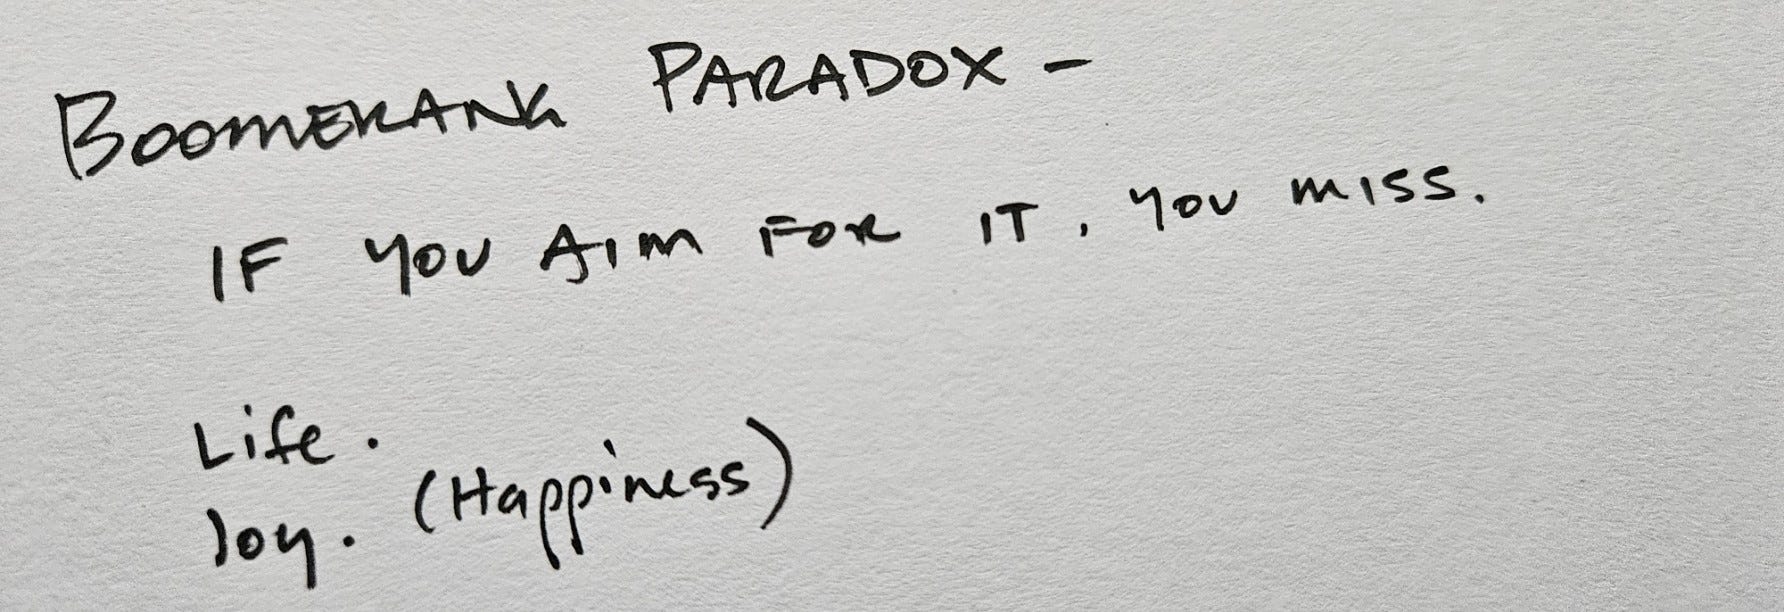 BOOMERANG PARADOX -
IF YOU AIM FOR IT, YOU MISS.
Life.
Joy. (Happiness)